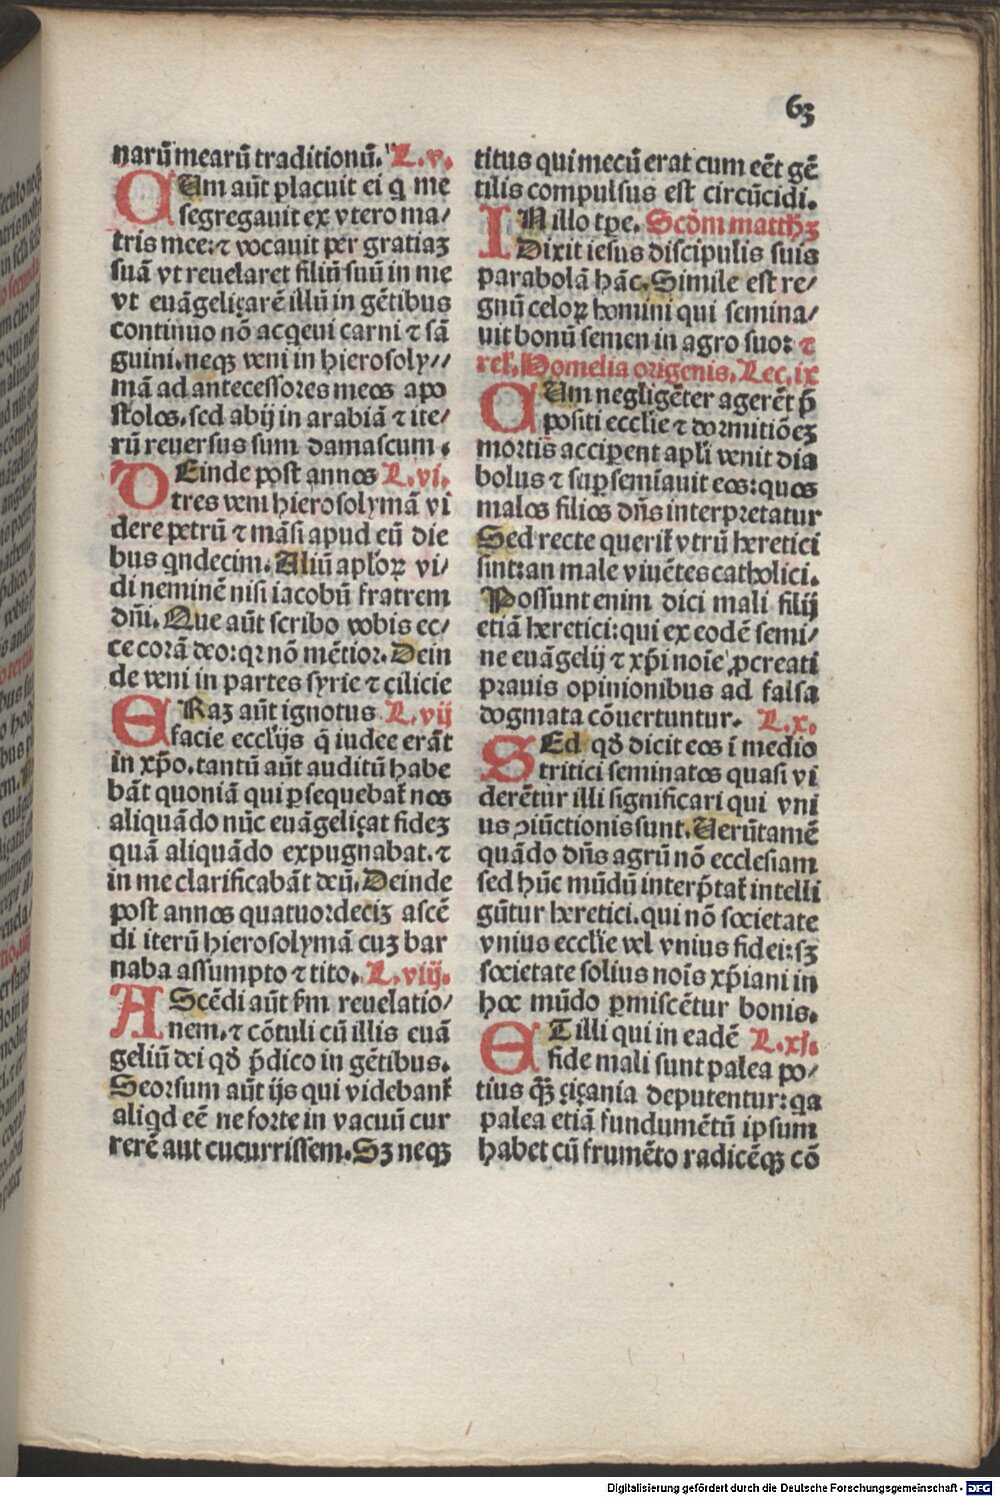 63
narū mearū traditionū. L.v.
CUm aūt placuit ei q me
segregauit ex vtero ma/
tris mee: ⁊ vocauit per gratiaꝫ
suā vt reuelaret filiū suū in me
vt euāgeliçarē illū in gētibus
continuo nō acqeui carni ⁊ sā
guini. neqꝫ veni in hierosoly//
mā ad antecessores meos apo
stolos. sed abij in arabiā ⁊ ite/
rū reuersus sum damascum.
DEinde post annos L.vi.
tres veni hierosolymā vi
dere petrū ⁊ māsi apud eū die
bus qndecim. Aliū apl'oꝝ vi/
di neminē nisi iacobū fratrem
dn̄i. Que aūt scribo vobis ec/
ce corā deo: qꝛ nō mētior. Dein
de veni in partes syrie ⁊ cilicie
ERaꝫ aūt ignotus L.vij
facie eccl'ijs q̄ iudee erāt
in xp̄o. tantū aūt auditū habe
bāt quoniā qui ꝑsequebat̄ nos
aliquādo nūc euāgeliçat fideꝫ
quā aliquādo expugnabat. ⁊
in me clarificabāt deū. Deinde
post annos quatuordeciꝫ ascē
di iterū hierosolymā cuꝫ bar
naba assumpto ⁊ tito. L.viij.
AScēdi aūt s̄m reuelatio/
nem. ⁊ cōtuli cū illis euā
geliū dei qđ p̄dico in gētibus.
Seorsum aūt ijs qui videbant̄
aliqd eē ne forte in vacuū cur
rerē aut cucurrissem. Sꝫ neqꝫ
titus qui mecū erat cum eēt gē
tilis compulsus est circūcidi.
IN illo tꝑe. Scd̄m mattheꝫ
Dixit iesus discipulis suis
parabolā hāc. Simile est re/
gnū celoꝝ homini qui semina/
uit bonū semen in agro suo: ⁊
rel'. Homelia origenis. Lec.ix
CUm negligēter agerēt p̄
positi ecclīe ⁊ dormitiōeꝫ
mortis acciperent apl'i venit dia
bolus ⁊ suꝑsemīauit eos: quos
malos filios dn̄s interpretatur
Sed recte querit̄ vtrū heretici
sint: an male viuētes catholici.
Possunt enim dici mali filij
etiā heretici: qui ex eodē semi/
ne euāgelij ⁊ xp̄i noīe ꝓcreati
prauis opinionibus ad falsa
dogmata cōuertuntur. L.x.
SEd qđ dicit eos ī medio
tritici seminatos quasi vi
derētur illi significari qui vni
us ꝯiūctionis sunt. Uerūtamē
quādo dn̄s agrū nō ecclesiam
sed hūc mūdū interp̄tat̄ intelli
gūtur heretici. qui nō societate
vnius ecclīe vel vnius fidei: sꝫ
societate solius noīs xp̄iani in
hoc mūdo ꝑmiscētur bonis.
ET illi qui in eadē L.xi.
fide mali sunt palea po/
tius qꝫ̄ çiçania deputentur: qa
palea etiā fundumētū ipsum
habet cū frumēto radicēqꝫ cō
Digitalisierung gefördert durch die Deutsche Forschungsgemeinschaft - DFG